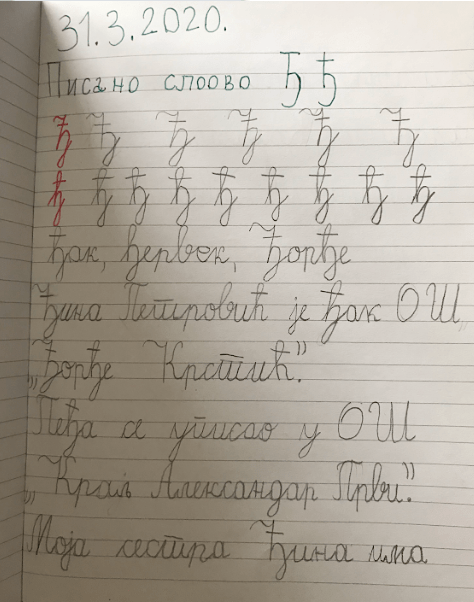 31.3.2020.
Писано слоово Ђ ђ
Ђ Ђ Ђ Ђ Ђ Ђ
ђ ђ ђ ђ ђ ђ ђ ђ ђ
ђак, ђервек, Ђорђе
Ђина Петровић је ђак ОШ
„Ђорђе Крстић.”
Пеђа се уписао у ОШ
„Краљ Александар Први.”
Моја сестра Ђина има